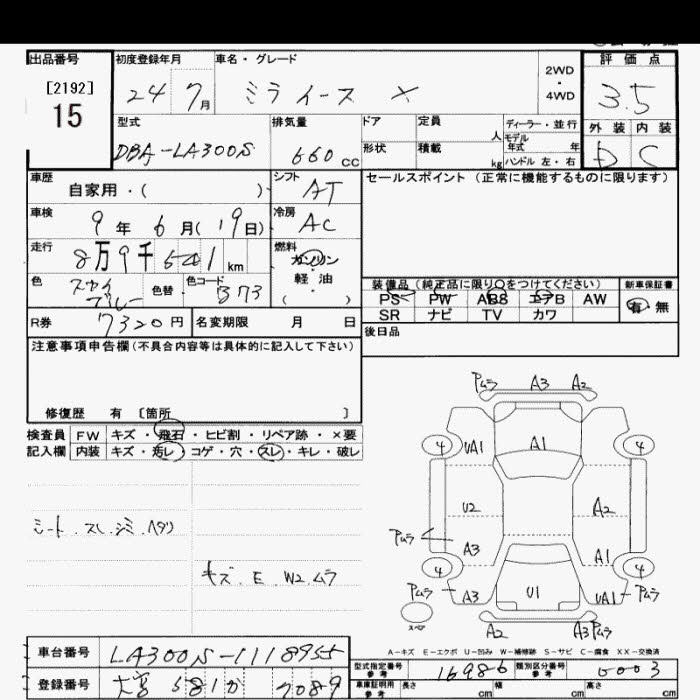 出品番号
[2192]
15
初度登録年月
24 7月
車名・グレード
ミライース X
2WD
・
4WD
評価点
3.5
外装 内装
D C
型式
DBA-LA300S
排気量
660 cc
ドア
定員
人
形状
積載
kg
ディーラー・並行
モデル
年式 年
ハンドル 左・右
車歴
自家用・( )
シフト
AT
セールスポイント (正常に機能するものに限ります)
車検
9年 6月(19日)
冷房
AC
走行
8万9千 501 km
燃料
ガソリン
・
軽油
( )
色
スカイ
ブルー
色替
色コード
B73
装備品 (純正品に限り○をつけてください)
新車保証書
PS PW ABS エアB AW
有・無
SR ナビ TV カワ
R券
7320円
名変期限 月 日
後日品
注意事項申告欄 (不具合内容等は具体的に記入して下さい)
修復歴 有 〔箇所 〕
検査員
記入欄
FW キズ・飛石・ヒビ割・リペア跡・×要
内装 キズ・汚レ・コゲ・穴・スレ・キレ・破レ
シート.スレ.シミ.ヘタリ
キズ.E.W2.ムラ
Pムラ A3 A2
4 UA1 A1 4
U2 A2
Pムラ A3 A1
4 4
Pムラ A3 U1 UA1 Pムラ
スペア
A2 A3 Pムラ
A-キズ E-エクボ U-凹み W-補修跡 S-サビ C-腐食 XX-交換済
車台番号
LA300S-1118955
型式指定番号
参考
16986
類別区分番号
参考
0003
登録番号
大宮 581 か 7089
車庫証明用
参考
長さ cm
幅 cm
高さ cm